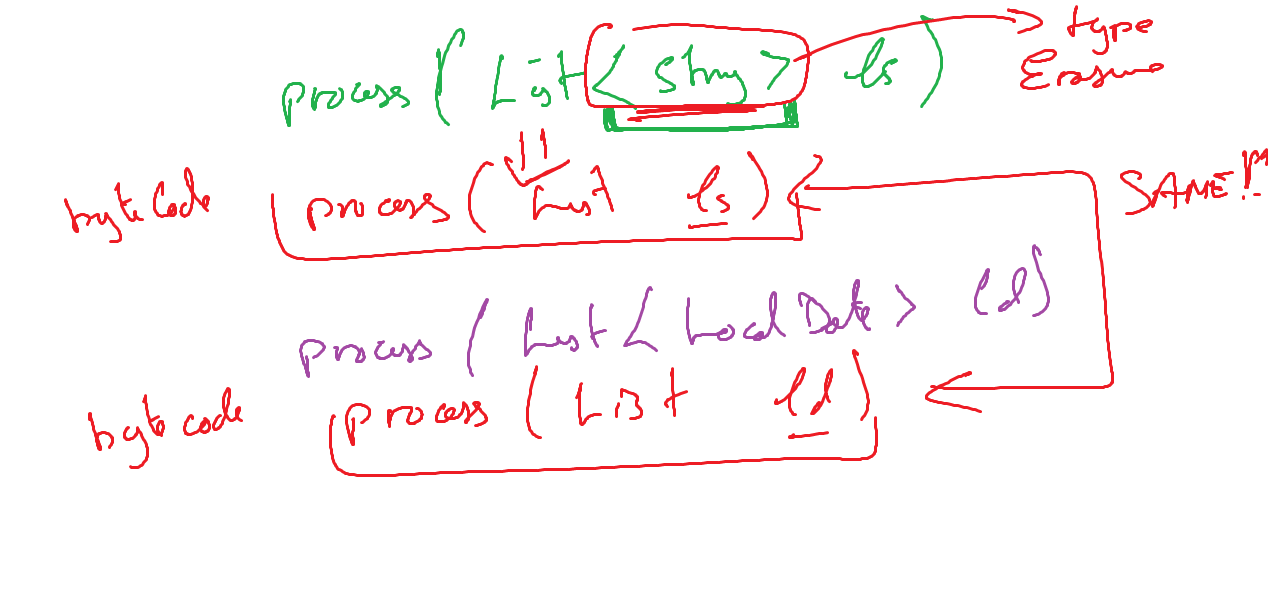 process ( List < String > ls )
type
Erasure
byteCode process ( List ls )
SAME!!
process ( List < LocalDate > ld )
byte code process ( List ld )